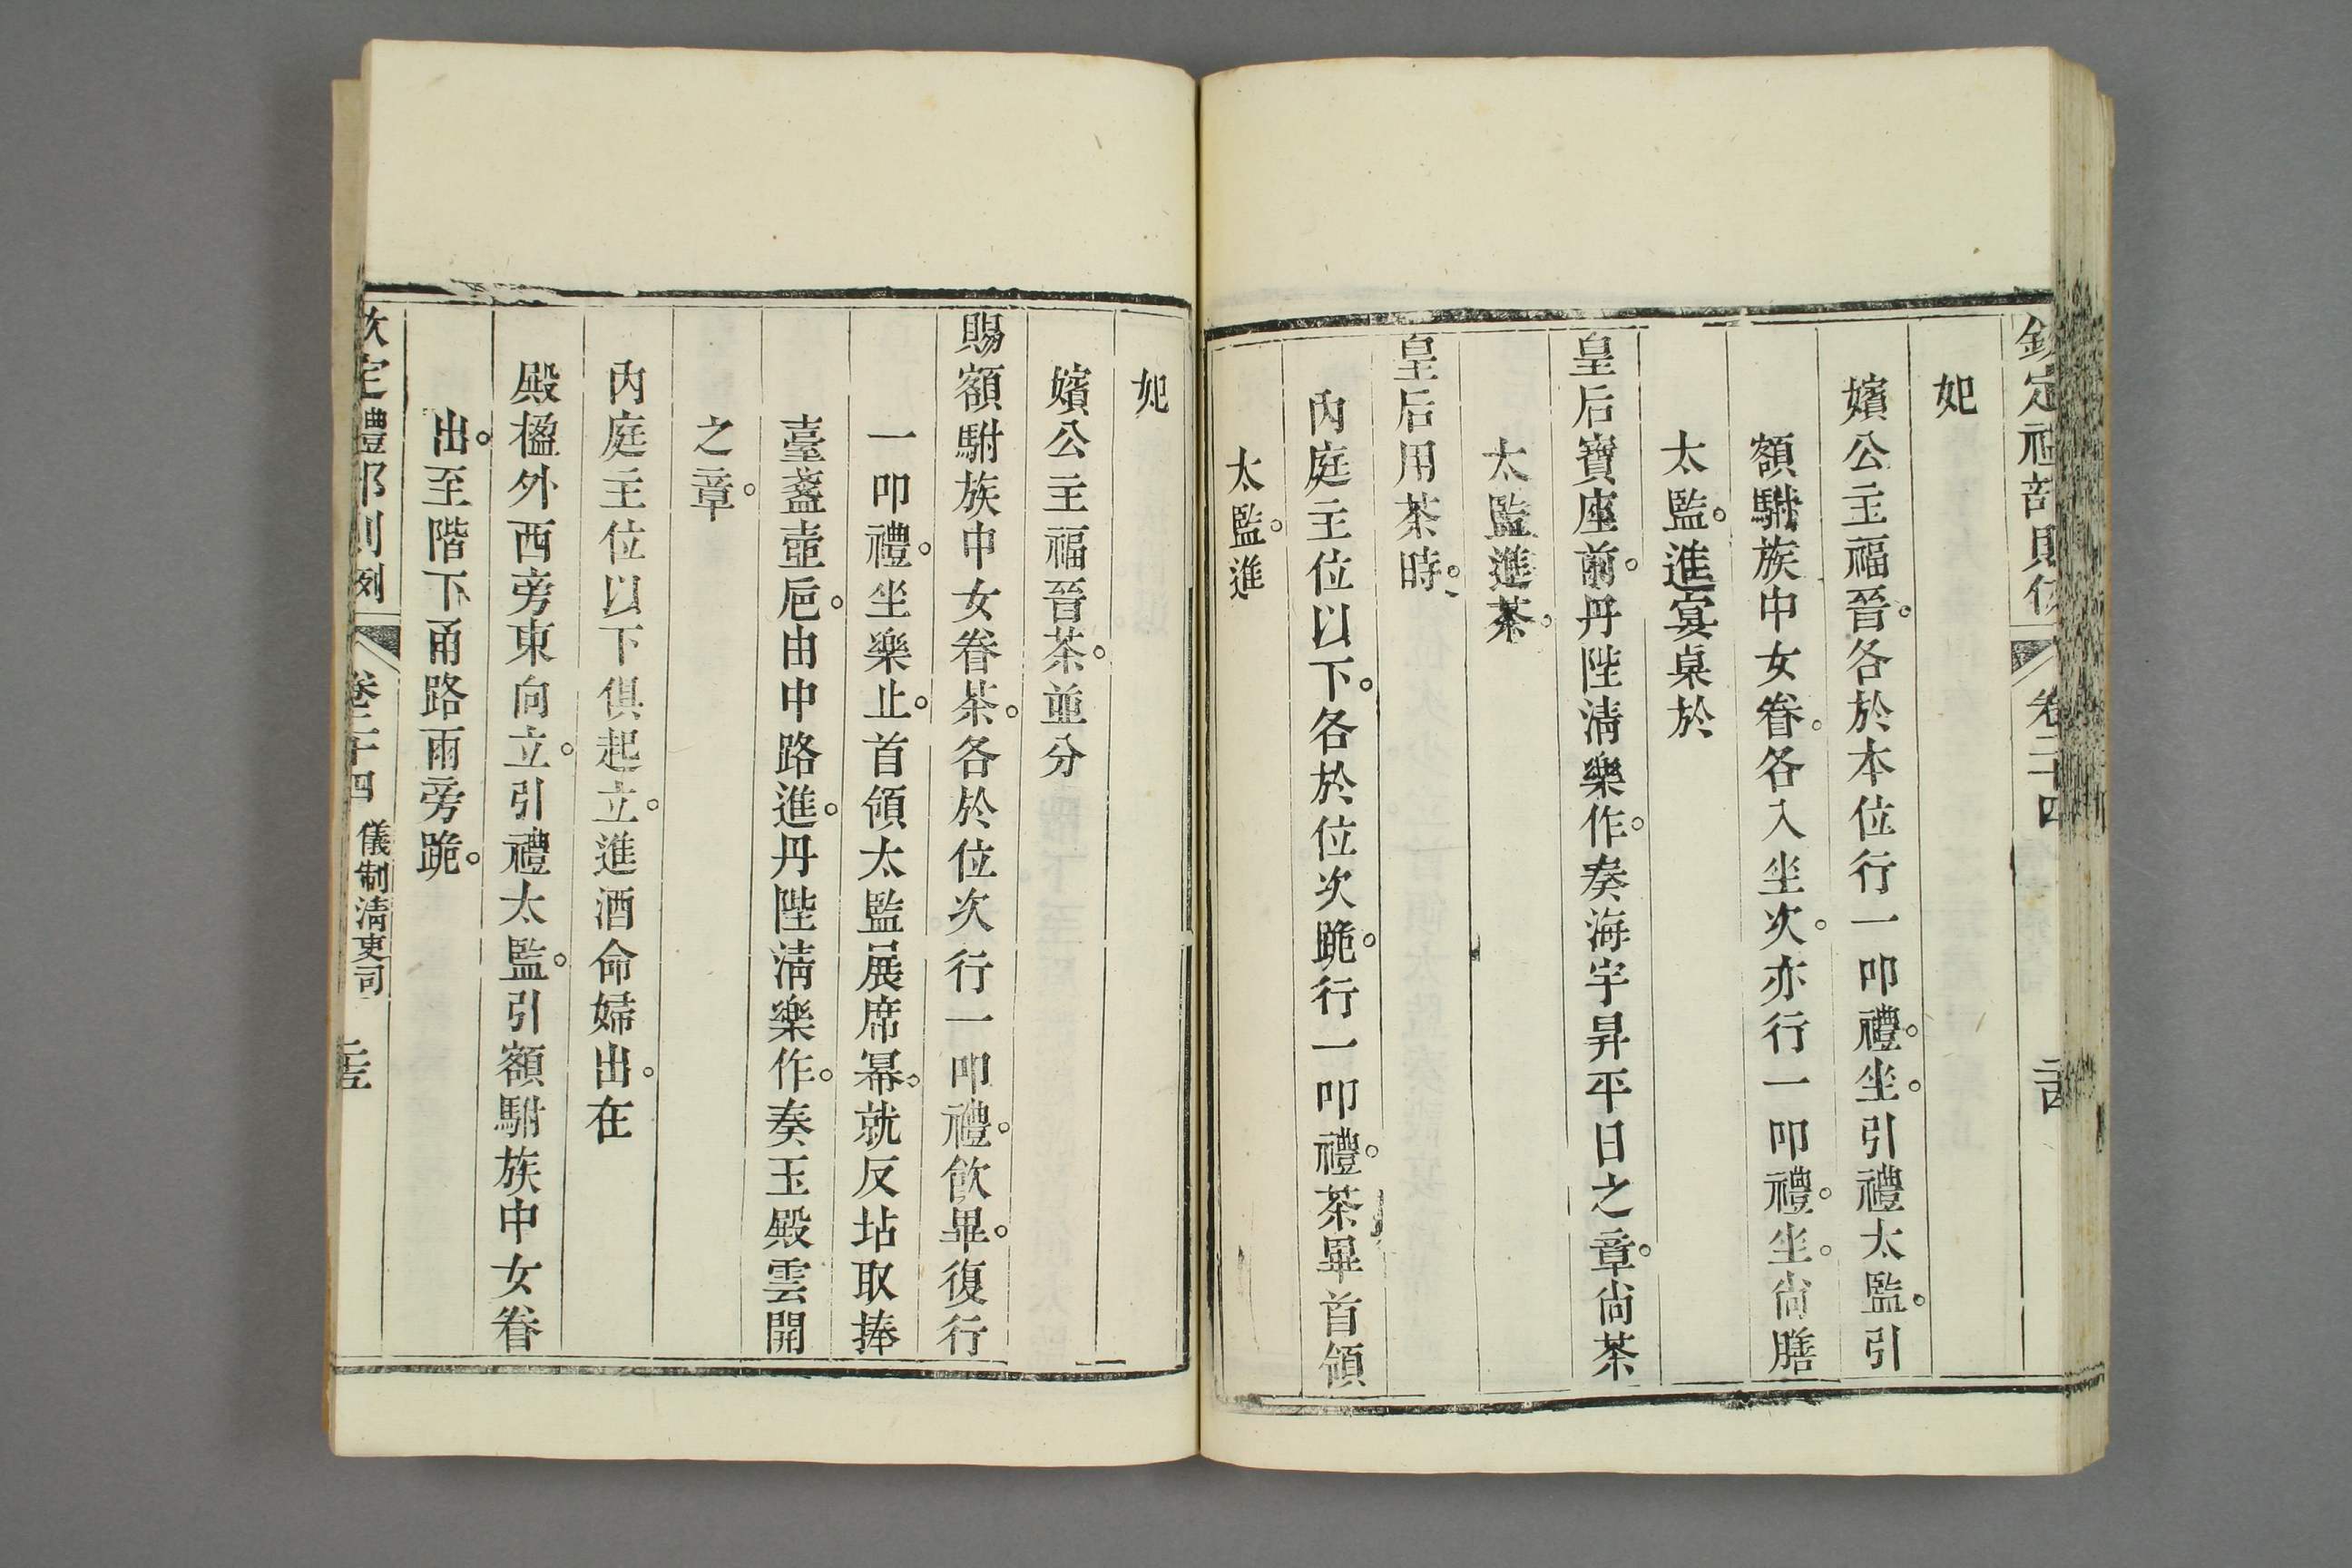 欽定禮部則例 卷二十四 二十四
妃
嬪公主福晉。各於本位行一叩禮。坐。引禮太監。引
額駙族中女眷。各入坐次。亦行一叩禮。坐。尚膳
太監。進宴桌於
皇后寶座前。丹陛淸樂作。奏海宇昇平日之章。尚茶
太監進茶。
皇后用茶時。
內庭主位以下。各於位次跪。行一叩禮。茶畢首領
太監。進
妃
嬪公主福晉茶。並分
賜額駙族中女眷茶。各於位次行一叩禮。飮畢。復行
一叩禮。坐樂止。首領太監展席冪。就反坫取捧
臺盞壺巵。由中路進。丹陛淸樂作。奏玉殿雲開
之章。
內庭主位以下俱起立。進酒命婦出。在
殿楹外西旁東向立。引禮太監。引額駙族中女眷
出。至階下甬路兩旁跪。
欽定禮部則例 卷二十四 儀制淸吏司 二十五